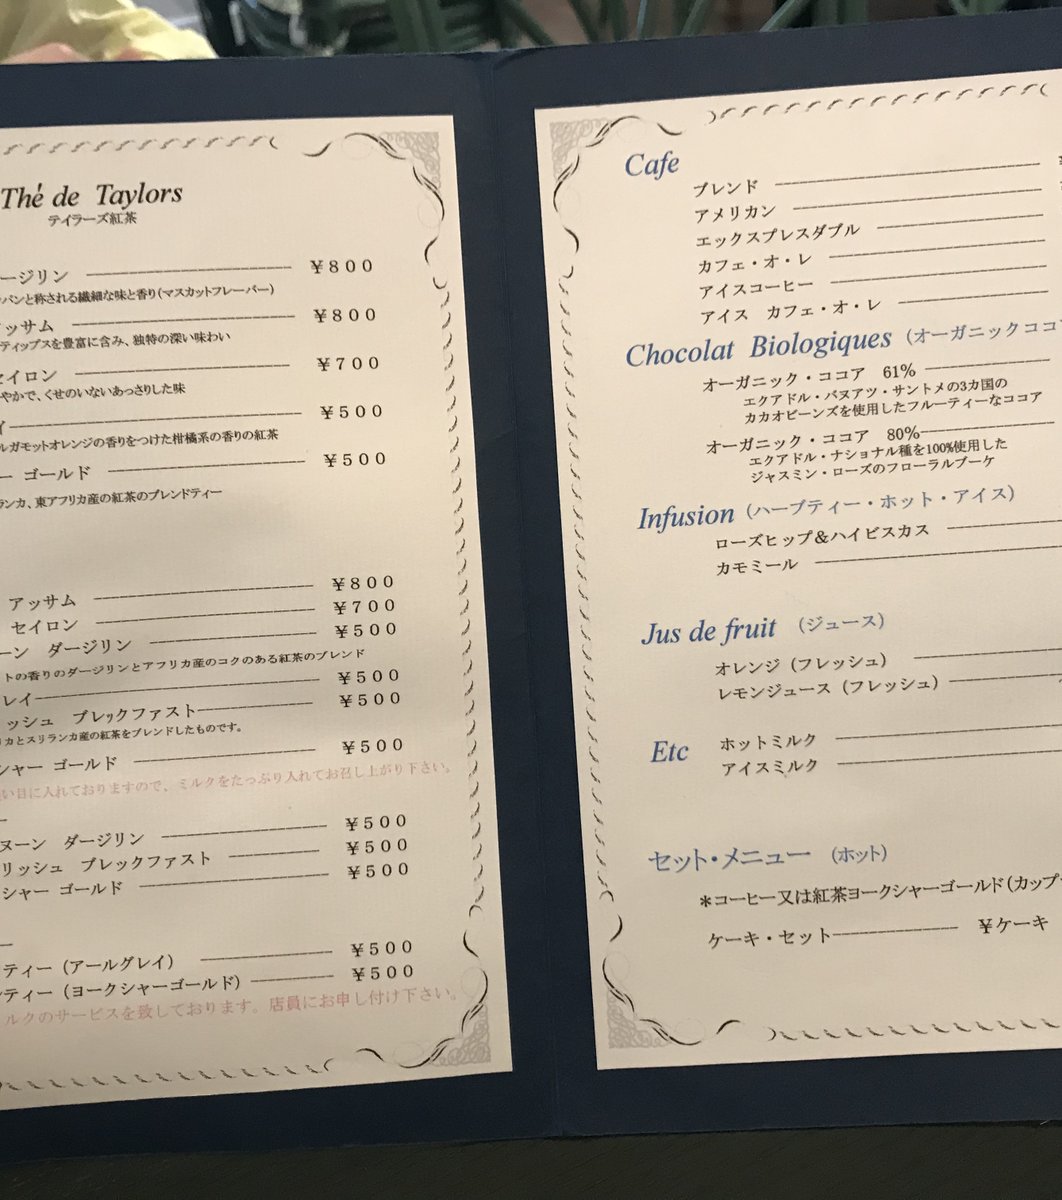 Thé de Taylors
テイラーズ紅茶
ージリン ¥800
パンと称される繊細な味と香り(マスカットフレーバー)
ッサム ¥800
ティップスを豊富に含み、独特の深い味わい
セイロン ¥700
やかで、くせのいないあっさりした味
イ ¥500
ルガモットオレンジの香りをつけた柑橘系の香りの紅茶
ー ゴールド ¥500
ランカ、東アフリカ産の紅茶のブレンドティー
アッサム ¥800
セイロン ¥700
ーン ダージリン ¥500
トの香りのダージリンとアフリカ産のコクのある紅茶のブレンド
レイ ¥500
ッシュ ブレックファスト ¥500
カとスリランカ産の紅茶をブレンドしたものです。
シャー ゴールド ¥500
い目に入れておりますので、ミルクをたっぷり入れてお召し上がり下さい。
ヌーン ダージリン ¥500
リッシュ ブレックファスト ¥500
シャー ゴールド ¥500
ティー (アールグレイ) ¥500
ティー (ヨークシャーゴールド) ¥500
ルクのサービスを致しております。店員にお申し付け下さい。
Cafe
ブレンド
アメリカン
エックスプレスダブル
カフェ・オ・レ
アイスコーヒー
アイス カフェ・オ・レ
Chocolat Biologiques (オーガニックココア
オーガニック・ココア 61%
エクアドル・バヌアツ・サントメの3カ国の
カカオビーンズを使用したフルーティーなココア
オーガニック・ココア 80%
エクアドル・ナショナル種を100%使用した
ジャスミン・ローズのフローラルブーケ
Infusion (ハーブティー・ホット・アイス)
ローズヒップ&ハイビスカス
カモミール
Jus de fruit (ジュース)
オレンジ (フレッシュ)
レモンジュース (フレッシュ)
Etc ホットミルク
アイスミルク
セット・メニュー (ホット)
*コーヒー又は紅茶ヨークシャーゴールド(カップ
ケーキ・セット ¥ケーキ